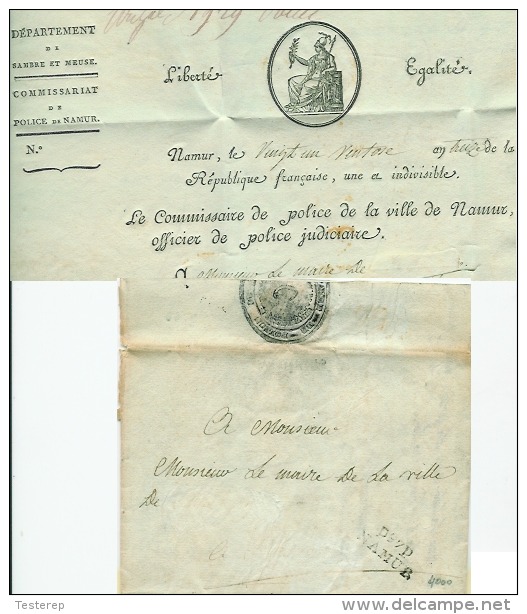 DÉPARTEMENT
DE
SAMBRE ET MEUSE.
COMMISSARIAT
DE
POLICE DE NAMUR.
N.º
Liberté
Egalité.
Namur, le Vingt un Ventose an treize de la
République française, une et indivisible.
Le Commissaire de police de la ville de Namur,
officier de police judiciaire.
A Monsieur Le maire de
A Monsieur
Monsieur Le maire De La ville
De
P97P
NAMUR
4000
Testerep
www.delcampe.net